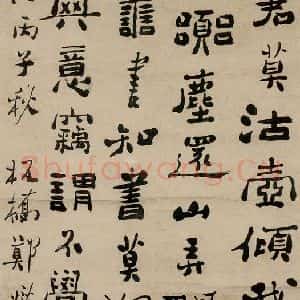 君莫沽壺傾我
塵還山弄
書知書莫
意竊謂不學
丙子秋 板橋鄭
Shufawang.cn